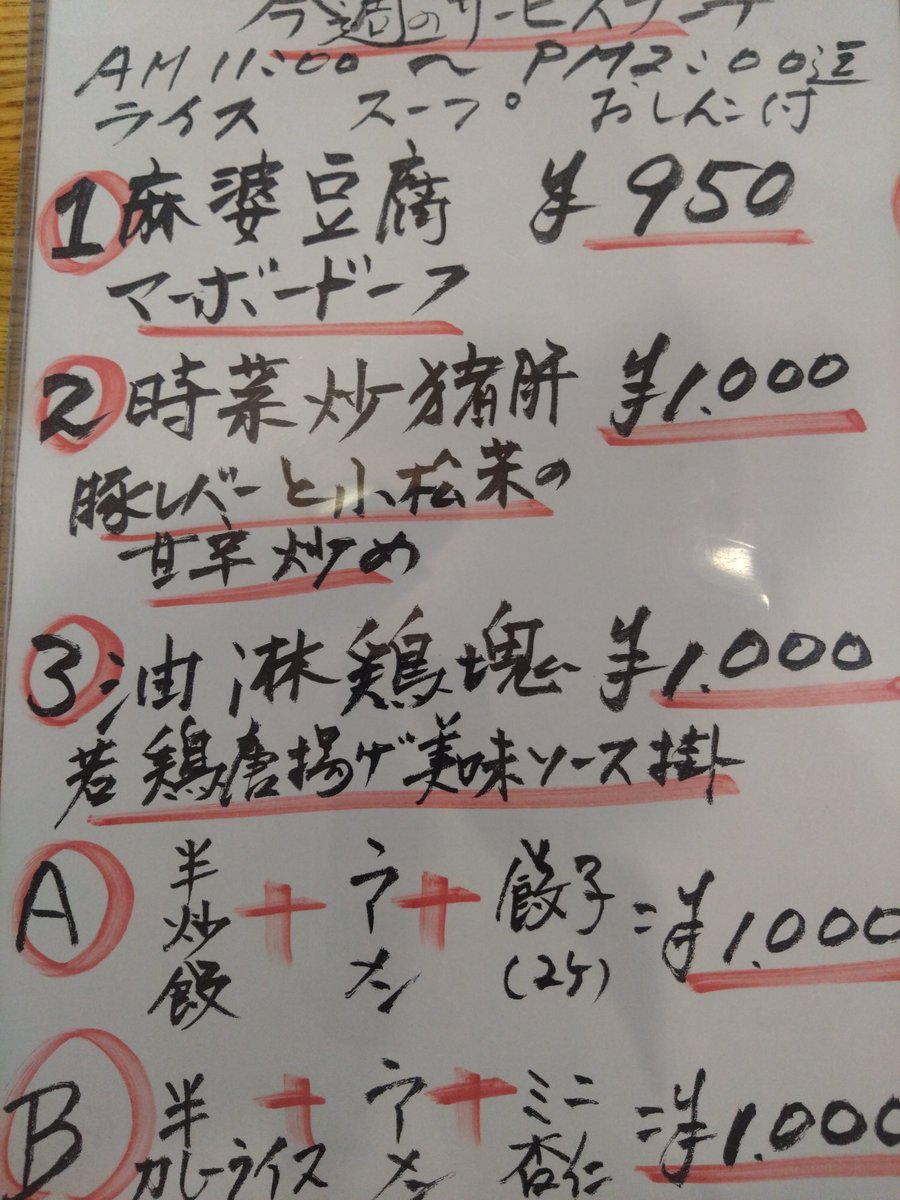 今週のサービスランチ
AM 11:00 〜 PM2:00迄
ライス スープ おしんこ付
1 麻婆豆腐 ¥950
マーボードーフ
2 時菜炒猪肝 ¥1.000
豚レバーと小松菜の
甘辛炒め
3 油淋鶏塊 ¥1.000
若鶏唐揚げ美味ソース掛
A 半炒飯 + ラーメン + 餃子(2ケ) = ¥1.000
B 半カレーライス + ラーメン + ミニ杏仁 = ¥1.000